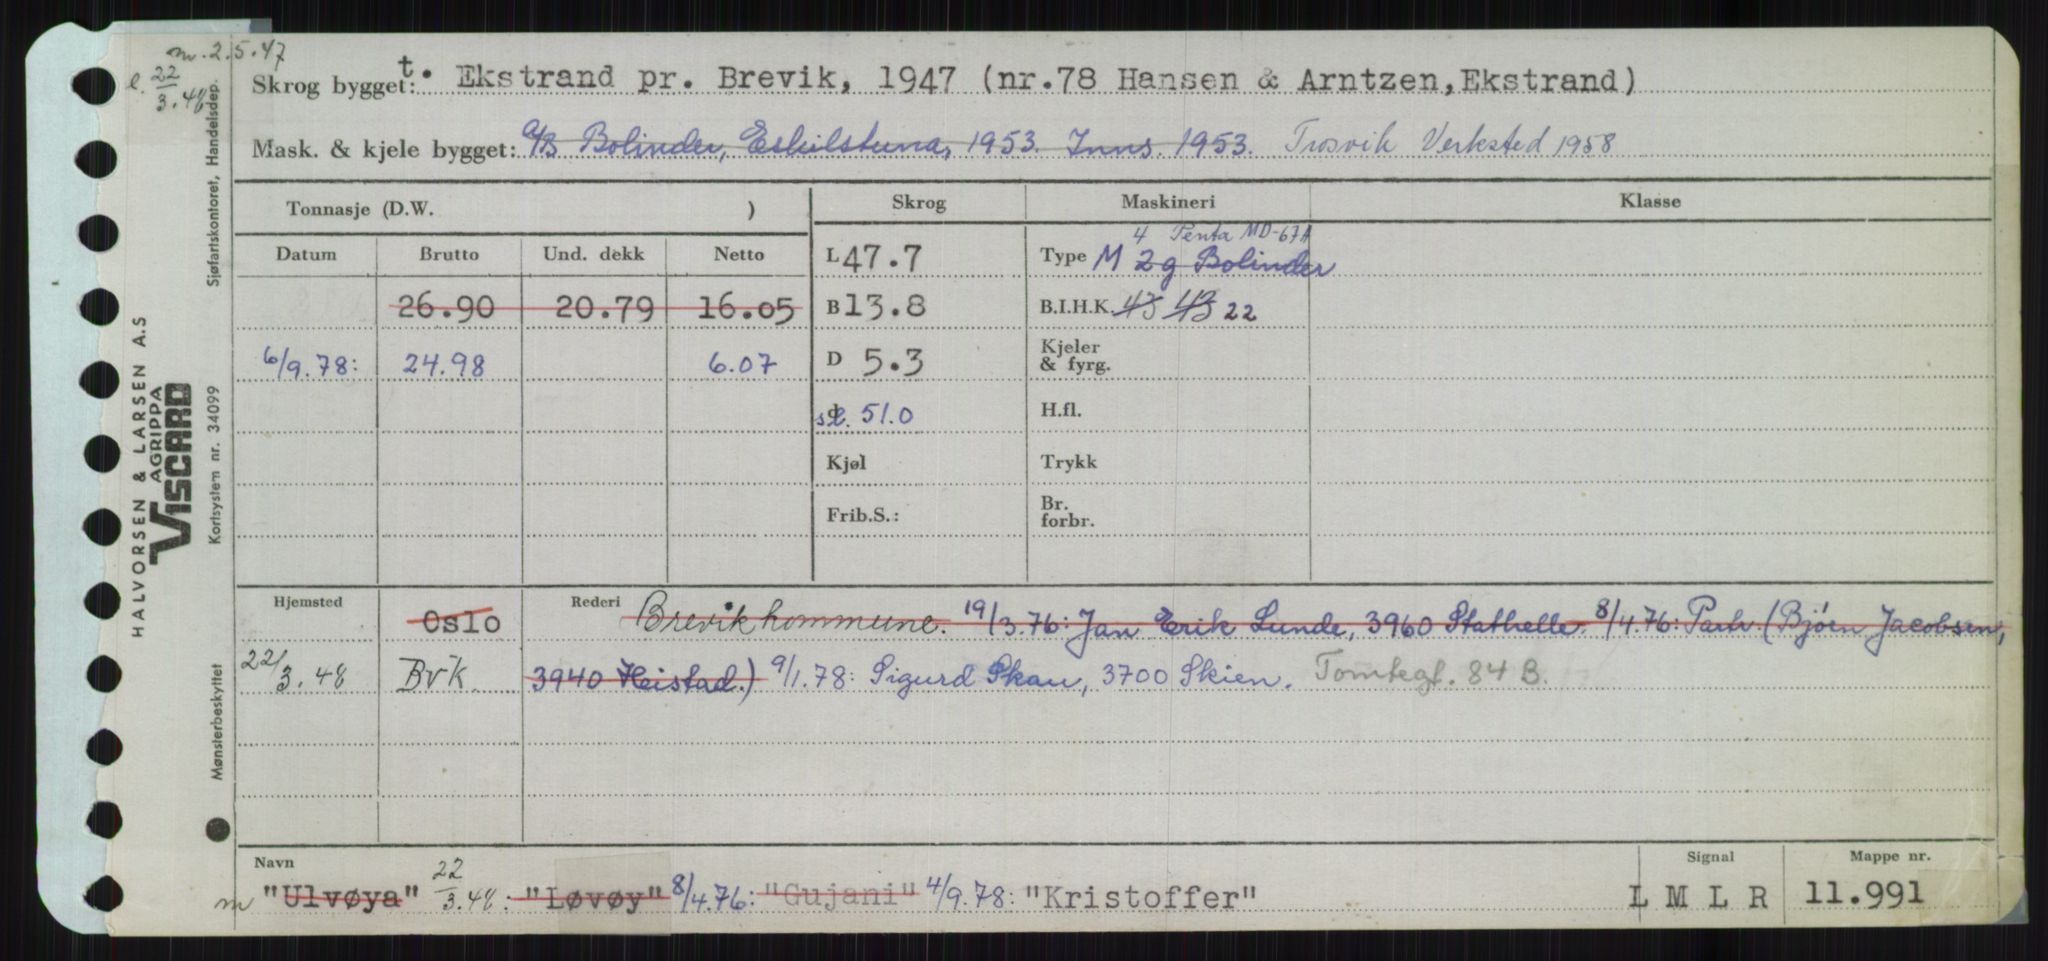 m. 2.5.47
l. 22/3.48
Skrog bygget: t. Ekstrand pr. Brevik, 1947 (nr.78 Hansen & Arntzen,Ekstrand)
Mask. & kjele bygget: A/B Bolinder, Eskilstuna, 1953. Inns. 1953. Trosvik Verksted 1958
Tonnasje (D.W. ) Skrog Maskineri Klasse
Datum Brutto Und. dekk Netto L 47.7 Type M 2g Bolinder 4 Penta MD-67A
26.90 20.79 16.05 B 13.8 B.I.H.K. 43 43 22
6/9.78: 24.98 6.07 D 5.3 Kjeler & fyrg.
sl. 51.0 H.fl.
Kjøl Trykk
Frib.S.: Br. forbr.
Hjemsted Oslo Rederi Brevik kommune. 19/3.76: Jan Erik Lunde, 3960 Stathelle. 8/4.76: Partr. (Bjørn Jacobsen,
22/3.48 BvK 3940 Heistad.) 9/1.78: Sigurd Skau, 3700 Skien. Tomtegt. 84 B.
Navn Signal Mappe nr.
m "Ulvøya" 22/3.48: "Løvøy" 8/4.76: "Gujani" 4/9.78: "Kristoffer" L M L R 11.991
HALVORSEN & LARSEN A.S
AGRIPPA
VISCARD
Mønsterbeskyttet Kortsystem nr. 34099 Sjøfartskontoret, Handelsdep.